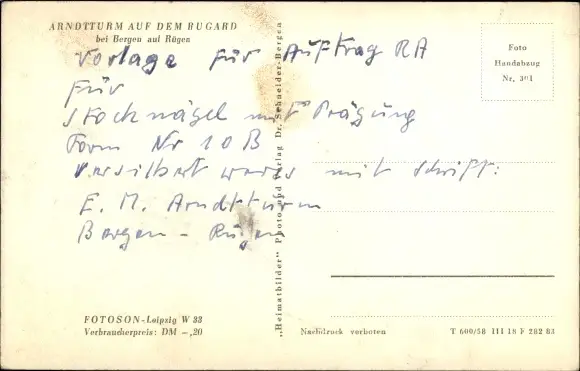 ARNDTTURM AUF DEM RUGARD
bei Bergen auf Rügen
Vorlage für Auftrag RA
für
Stocknägel mit Prägung
Form Nr 10 B
versilbert mit Schrift:
E. M. Arndtturm
Bergen - Rügen
Foto
Handabzug
Nr. 301
„Heimatbilder" Photo und Verlag Dr. Schneider-Bergen
FOTOSON-Leipzig W 33
Verbraucherpreis: DM -,20
Nachdruck verboten
T 600/58 III 18 F 282 83